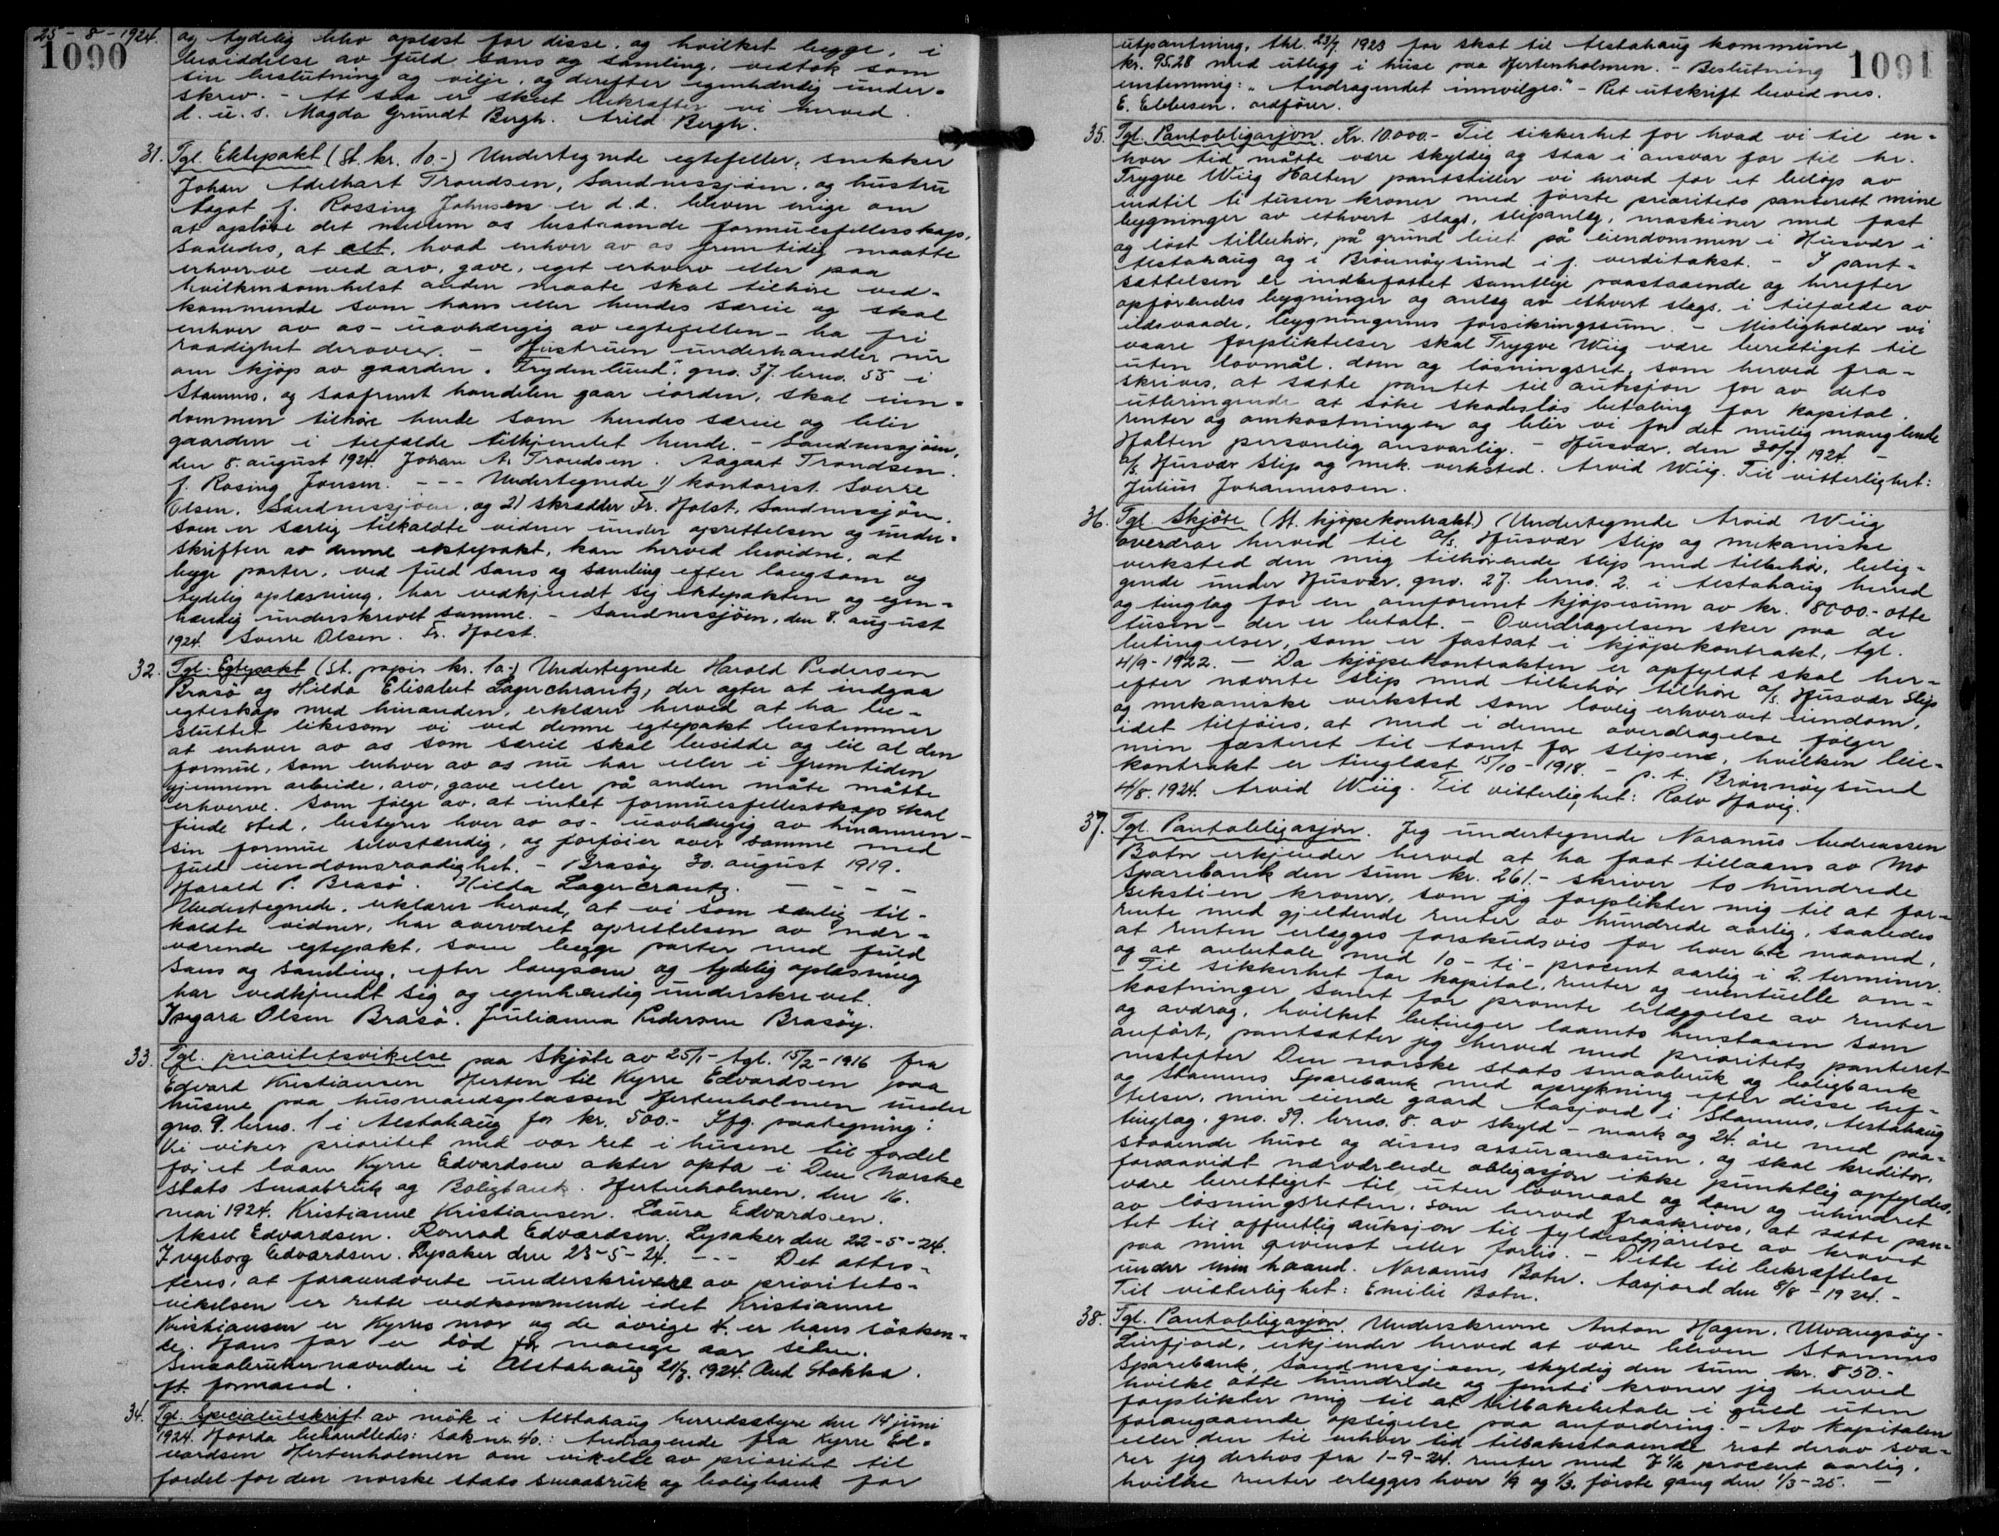 25-8-1924.
1090
og tydelig blev oplæst for disse, og hvilket begge, i
besiddelse av fuld sans og samling, vedtok som
sin beslutning og vilje, og derefter egenhændig under-
skrev. - At saa er skeet bekræfter vi herved
d. u. s. Magda Grundt Bergh. Arild Bergh.
31. Tgl. Ektepakt (St. kr. 10.-) Undertegnede egtefeller, snekker
Johan Adelhart Trondsen, Sandnessjøen, og hustru
Aagot f. Rossing Johnsen er d.d. bleven enige om
at opløse det mellem os bestaaende formuesfellesskap,
saaledes, at alt, hvad enhver av os fremtidig maatte
erhverve ved arv, gave, eget erhverv eller paa
hvilkensomhelst anden maate skal tilhøre ved-
kommende som hans eller hendes særeie og skal
enhver av os - uavhængig av egtefellen - ha fri
raadighet derover. - Hustruen underhandler nu
om kjøp av gaarden "Frydenlund", gno. 37. brno. 55 i
Stamnes, og saafremt handelen gaar iorden, skal eien-
dommen tilhøre hende som hendes særeie og blir
gaarden i tilfælde tilskjøtet hende. - Sandnessjøen,
den 8. august 1924. Johan A. Trondsen. Aagaat Trondsen
f. Rosing Jonsen. --- Undertegnede 1) kontorist Sverre
Olsen, Sandnessjøen, og 2) skrædder Fr. Holst, Sandnessjøen,
som er særlig tilkaldte vidner under oprettelsen og under-
skriften av denne ektepakt, kan herved bevidne, at
begge parter, ved fuld sans og samling efter langsom og
tydelig oplæsning, har vedkjendt sig ektepakten og egen-
hændig underskrevet samme. - Sandnessjøen, den 8. august
1924. Sverre Olsen. Fr. Holst.
32. Tgl. Egtepakt (st. papir kr. 10.-) Undertegnede Harald Pedersen
Brasø og Hilda Elisabet Lagerchrantz, der agter at indgaa
egteskap med hinanden, erklærer herved at ha be-
sluttet likesom vi ved denne egtepakt bestemmer
at enhver av os som særeie skal besidde og eie al den
formue, som enhver av os nu har eller i fremtiden
gjennem arbeide, arv, gave eller på anden måte måtte
erhverve. Som følge av, at intet formuesfellesskap skal
finde sted, bestyrer hver av os - uavhengig av hinannen -
sin formue selvstændig, og forføier over samme med
fuld eiendomsraadighet. - Brasøy 30. august 1919.
Harald P. Brasø. Hilda Lagercrantz. - - - -
Undertegnede, erklærer herved, at vi som særlig til-
kaldte vidner, har overværet oprettelsen av nær-
værende egtepakt, som begge parter med fuld
sans og samling, efter langsom og tydelig oplæsning
har vedkjendt sig og egenhændig underskrevet.
Olsen Brasø. Julianna Pedersen Brasøy.
33. Tgl. prioritetsvikelse paa Skjøte av 25/1- tgl. 15/2-1916 fra
Edvard Kristiansen Herten til Kyrre Edvardsen paa
husene paa husmandsplassen Hertenholmen under
gno. 9. brno. 1 i Alstahaug for kr. 500.- Sfg. paategning:
Vi viker prioritet med vor ret i husene til fordel
for et laan Kyrre Edvardsen akter opta i Den norske
stats Smaabruk og Boligbank. Hertenholmen, den 16.
mai 1924. Kristianne Kristiansen. Laura Edvardsen.
Aksel Edvardsen. Konrad Edvardsen. Lysaker den 22-5-24.
Ingeborg Edvardsen. Lysaker den 23-5-24. --- Det attes-
teres, at forannævnte underskrivere av prioritets-
vikelsen er rette vedkommende idet Kristianne
Kristiansen er Kyrres mor og de øvrige 4. er hans søsken-
de. Hans far er død for mange aar siden.
Smaabrukernævnden i Alstahaug 21/7. 1924. And Stokka.
ft. formand.
34. Tgl. Specialutskrift av møk i Alstahaug herredsstyre den 14 juni
1924. Hvorda behandledes: Sak nr. 40.: Andragende fra Kyrre Ed-
vardsen Hertenholmen om vikelse av prioritet til
fordel for den norske stats smaabruk og boligbank for
1091
utpantning, thl. 23/7 1923 for skat til Alstahaug kommune
kr. 95.28 med utlegg i huse paa Hertenholmen. - Beslutning
enstemmig: "Andragendet innvilges." - Ret utskrift bevidnes.
E. Ebbesen. ordfører.
35. Tgl. Pantobligasjon. Kr. 10.000.- Til sikkerhet for hvad vi til en-
hver tid måtte være skyldig og staa i ansvar for til hr.
Trygve Wiig Halten pantstiller vi herved for et beløp av
indtil ti tusen kroner med første prioritets panterett mine
bygninger av ethvert slags, slipanlæg, maskiner med fast
og løst tilbehør, på grund leiet på eiendommen i Husvær i
Alstahaug og i Brønnøysund i f. verditakst. - I pant-
sættelsen er indbefattet samtlige paastaaende og herefter
opførendes bygninger og anlæg av ethvert slags, i tilfælde av
ildsvaade, bygningernes forsikringssum. - Misligholder vi
vaare forpliktelser skal Trygve Wiig være berettiget til
uten lovmål, dom og løsningsret, som herved fra-
skrives, at sætte pantet til auksjon for av dets
utbringende at søke skadesløs betaling for kapital,
renter og omkostninger og blir vi for det mulig manglende
Halten personlig ansvarlig. - Husvær, den 30/7 1924. -
A/S Husvær Slip og mek. verksted. Arvid Wiig. Til vitterlighet:
Julius Johannessen.
36. Tgl. Skjøte (st. kjøpekontrakt) Undertegnede Arvid Wiig
overdrar herved til A/S. Husvær Slip og mekaniske
verksted den mig tilhørende slip med tilbehør, belig-
gende under Husvær, gno. 27. brno. 2. i Alstahaug herred
og tinglag for en omforenet kjøpesum av kr. 8000.- otte
tusen - der er betalt. - Overdragelsen sker paa de
betingelser, som er fastsat i kjøpekontrakt, tgl.
4/9-1922. - Da kjøpekontrakten er opfyldt skal her-
efter nævnte slip med tilbehør tilhøre A/S. Husvær Slip
og mekaniske verksted som lovlig erhvervet eiendom,
idet tilføies, at med i denne overdragelse følger
min fæsteret til tomt for slipene, hvilken leie-
kontrakt er tinglæst 15/10-1918. - p. t. Brønnøysund
4/8. 1924. Arvid Wiig. Til vitterlighet: Rolv Havig.
37. Tgl. Pantobligasjon. Jeg undertegnede Noranus Andreassen
Botn erkjender herved at ha faat tillaans av Mo
Sparebank den sum kr. 261.- skriver to hundrede
sekstien kroner, som jeg forplikter mig til at for-
rente med gjeldende renter av hundrede aarlig, saaledes
at renten erlægges forskudsvis for hver 6te maaned,
og at avbetale med 10 - ti - procent aarlig i 2 terminer.
- Til sikkerhet for kapital, renter og eventuelle om-
kostninger samt for promte erlæggelse av renter
og avdrag, hvilket betinger laanets henstaaen som
anført, pantsætter jeg herved med prioritets panteret
nestefter Den norske stats smaabruk og boligbank
og Stamnes Sparebank med oprykning efter disse hef-
telser, min eiende gaard Aasjord i Stamnes, Alstahaug
tinglag, gno. 39. brno. 8. av skyld - mark og 24 øre med paa-
staaende huse og disses assurancesum, og skal kreditor,
forsaavidt nærværende obligasjon ikke punktlig opfyldes,
være berettiget til, uten lovmaal og dom og uhindret
av løsningsretten, som herved fraskrives, at sætte pan-
tet til offentlig auksjon til fyldestgjørelse av kravet
paa min gevinst eller forlis. - Dette til bekræftelse
under min haand. Noranus Botn. Aasjord den 8/8-1924. -
Til vitterlighet: Emilie Botn.
38. Tgl. Pantobligasjon. Underskrevne Anton Hagen, Ulvangsøy-
Leirfjord, erkjender herved at være bleven Stamnes
Sparebank, Sandnessjøen, skyldig den sum kr. 850.-
hvilke otte hundrede og femti kroner jeg herved
forplikter mig til at tilbakebetale i guld uten
forangaaende opsigelse paa anfordring. - Av kapitalen
eller den til enhver tid tilbakestaaende rest derav sva-
rer jeg derhos fra 1-9-24. renter med 7 1/2 procent aarlig,
hvilke renter erlegges hver 1/9 og 1/3. første gang den 1/3-25. -